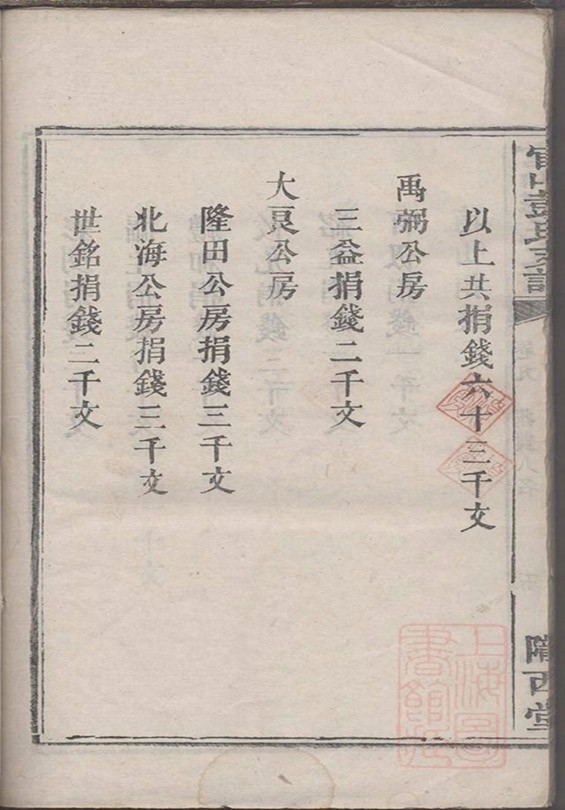 以上共捐錢六十三千文
禹弼公房
三益捐錢二千文
大良公房
隆田公房捐錢三千文
北海公房捐錢三千文
世銘捐錢二千文
彭氏支譜
隴西堂
上海圖書館藏